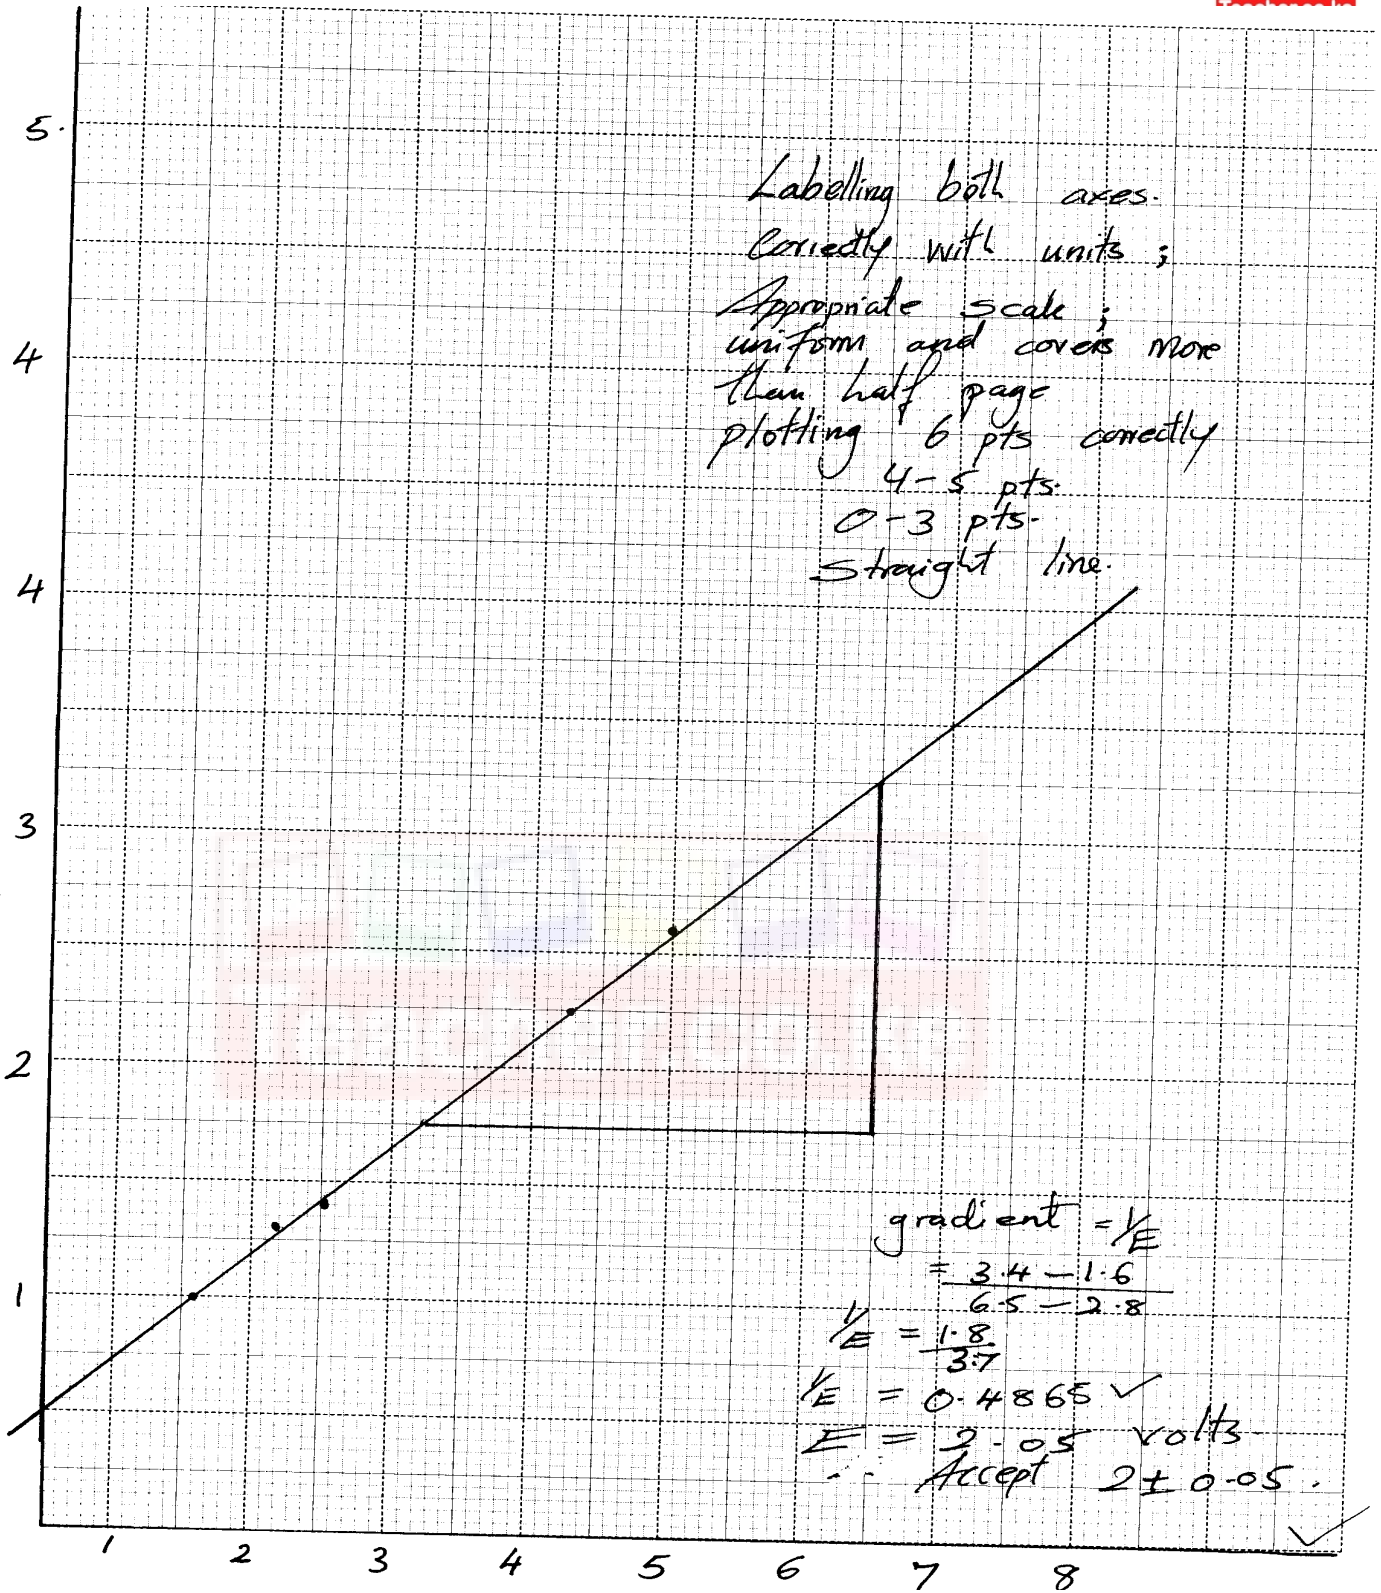 5.
Labelling both axes.
Correctly with units ;
Appropriate scale ;
uniform and covers more
4
than half page
plotting 6 pts correctly
4-5 pts.
0-3 pts-
Straight line.
4
3
2
gradient = 1/E
= 3.4 - 1.6
6.5 - 2.8
1
1/E = 1.8
3.7
1/E = 0.4865 ✓
E = 2.05 volts
∴ Accept 2 ± 0.05 .
1 2 3 4 5 6 7 8